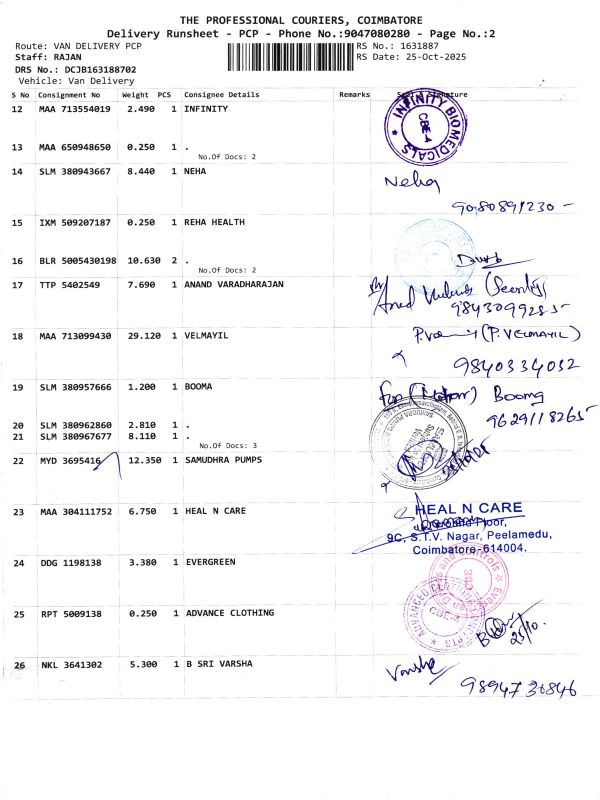 THE PROFESSIONAL COURIERS, COIMBATORE
Delivery Runsheet - PCP - Phone No.:9047080280 - Page No.:2
Route: VAN DELIVERY PCP
RS No.: 1631887
Staff: RAJAN
RS Date: 25-Oct-2025
DRS No.: DCJB163188702
Vehicle: Van Delivery
S No Consignment No Weight PCS Consignee Details Remarks Seal & Signature
12 MAA 713554019 2.490 1 INFINITY
INFINITY BIO MEDICALS CBE-4
13 MAA 650948650 0.250 1 .
No.Of Docs: 2
14 SLM 380943667 8.440 1 NEHA
Neha
9080891230
15 IXM 509207187 0.250 1 REHA HEALTH
16 BLR 5005430198 10.630 2 .
No.Of Docs: 2
17 TTP 5402549 7.690 1 ANAND VARADHARAJAN
18 MAA 713099430 29.120 1 VELMAYIL
(P. VELMAYIL)
9840334032
19 SLM 380957666 1.200 1 BOOMA
Booma
9629118265
20 SLM 380962860 2.810 1 .
21 SLM 380967677 8.110 1 .
No.Of Docs: 3
22 MYD 3695416 12.350 1 SAMUDHRA PUMPS
23 MAA 304111752 6.750 1 HEAL N CARE
HEAL N CARE
Floor,
9C, S.T.V. Nagar, Peelamedu,
Coimbatore-614004.
24 DDG 1198138 3.380 1 EVERGREEN
25 RPT 5009138 0.250 1 ADVANCE CLOTHING
ADVANCED CLOTHING CBE-4
25/10.
26 NKL 3641302 5.300 1 B SRI VARSHA
Varsha
9894730846